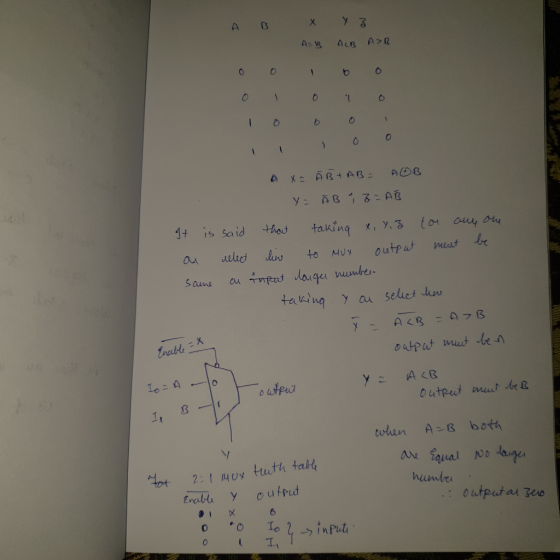 A B X Y Z
A=B A<B A>B
0 0 1 0 0
0 1 0 1 0
1 0 0 0 1
1 1 1 0 0
X = A̅B̅ + AB = A⊙B
Y = A̅B ; Z = AB̅
It is said that taking X, Y, Z (or any one
as select line to MUX output must be
same as input larger number.
taking Y as select line
Y̅ = \overline{A<B} = A > B
output must be A
Y = A<B
output must be B
when A=B both
are Equal No larger
number
∴ output as zero
\overline{Enable} = X
I₀ = A 0 output
I₁ B 1
Y
For 2:1 MUX truth table
\overline{Enable} Y output
1 X 0
0 0 I₀
0 1 I₁ } → inputs